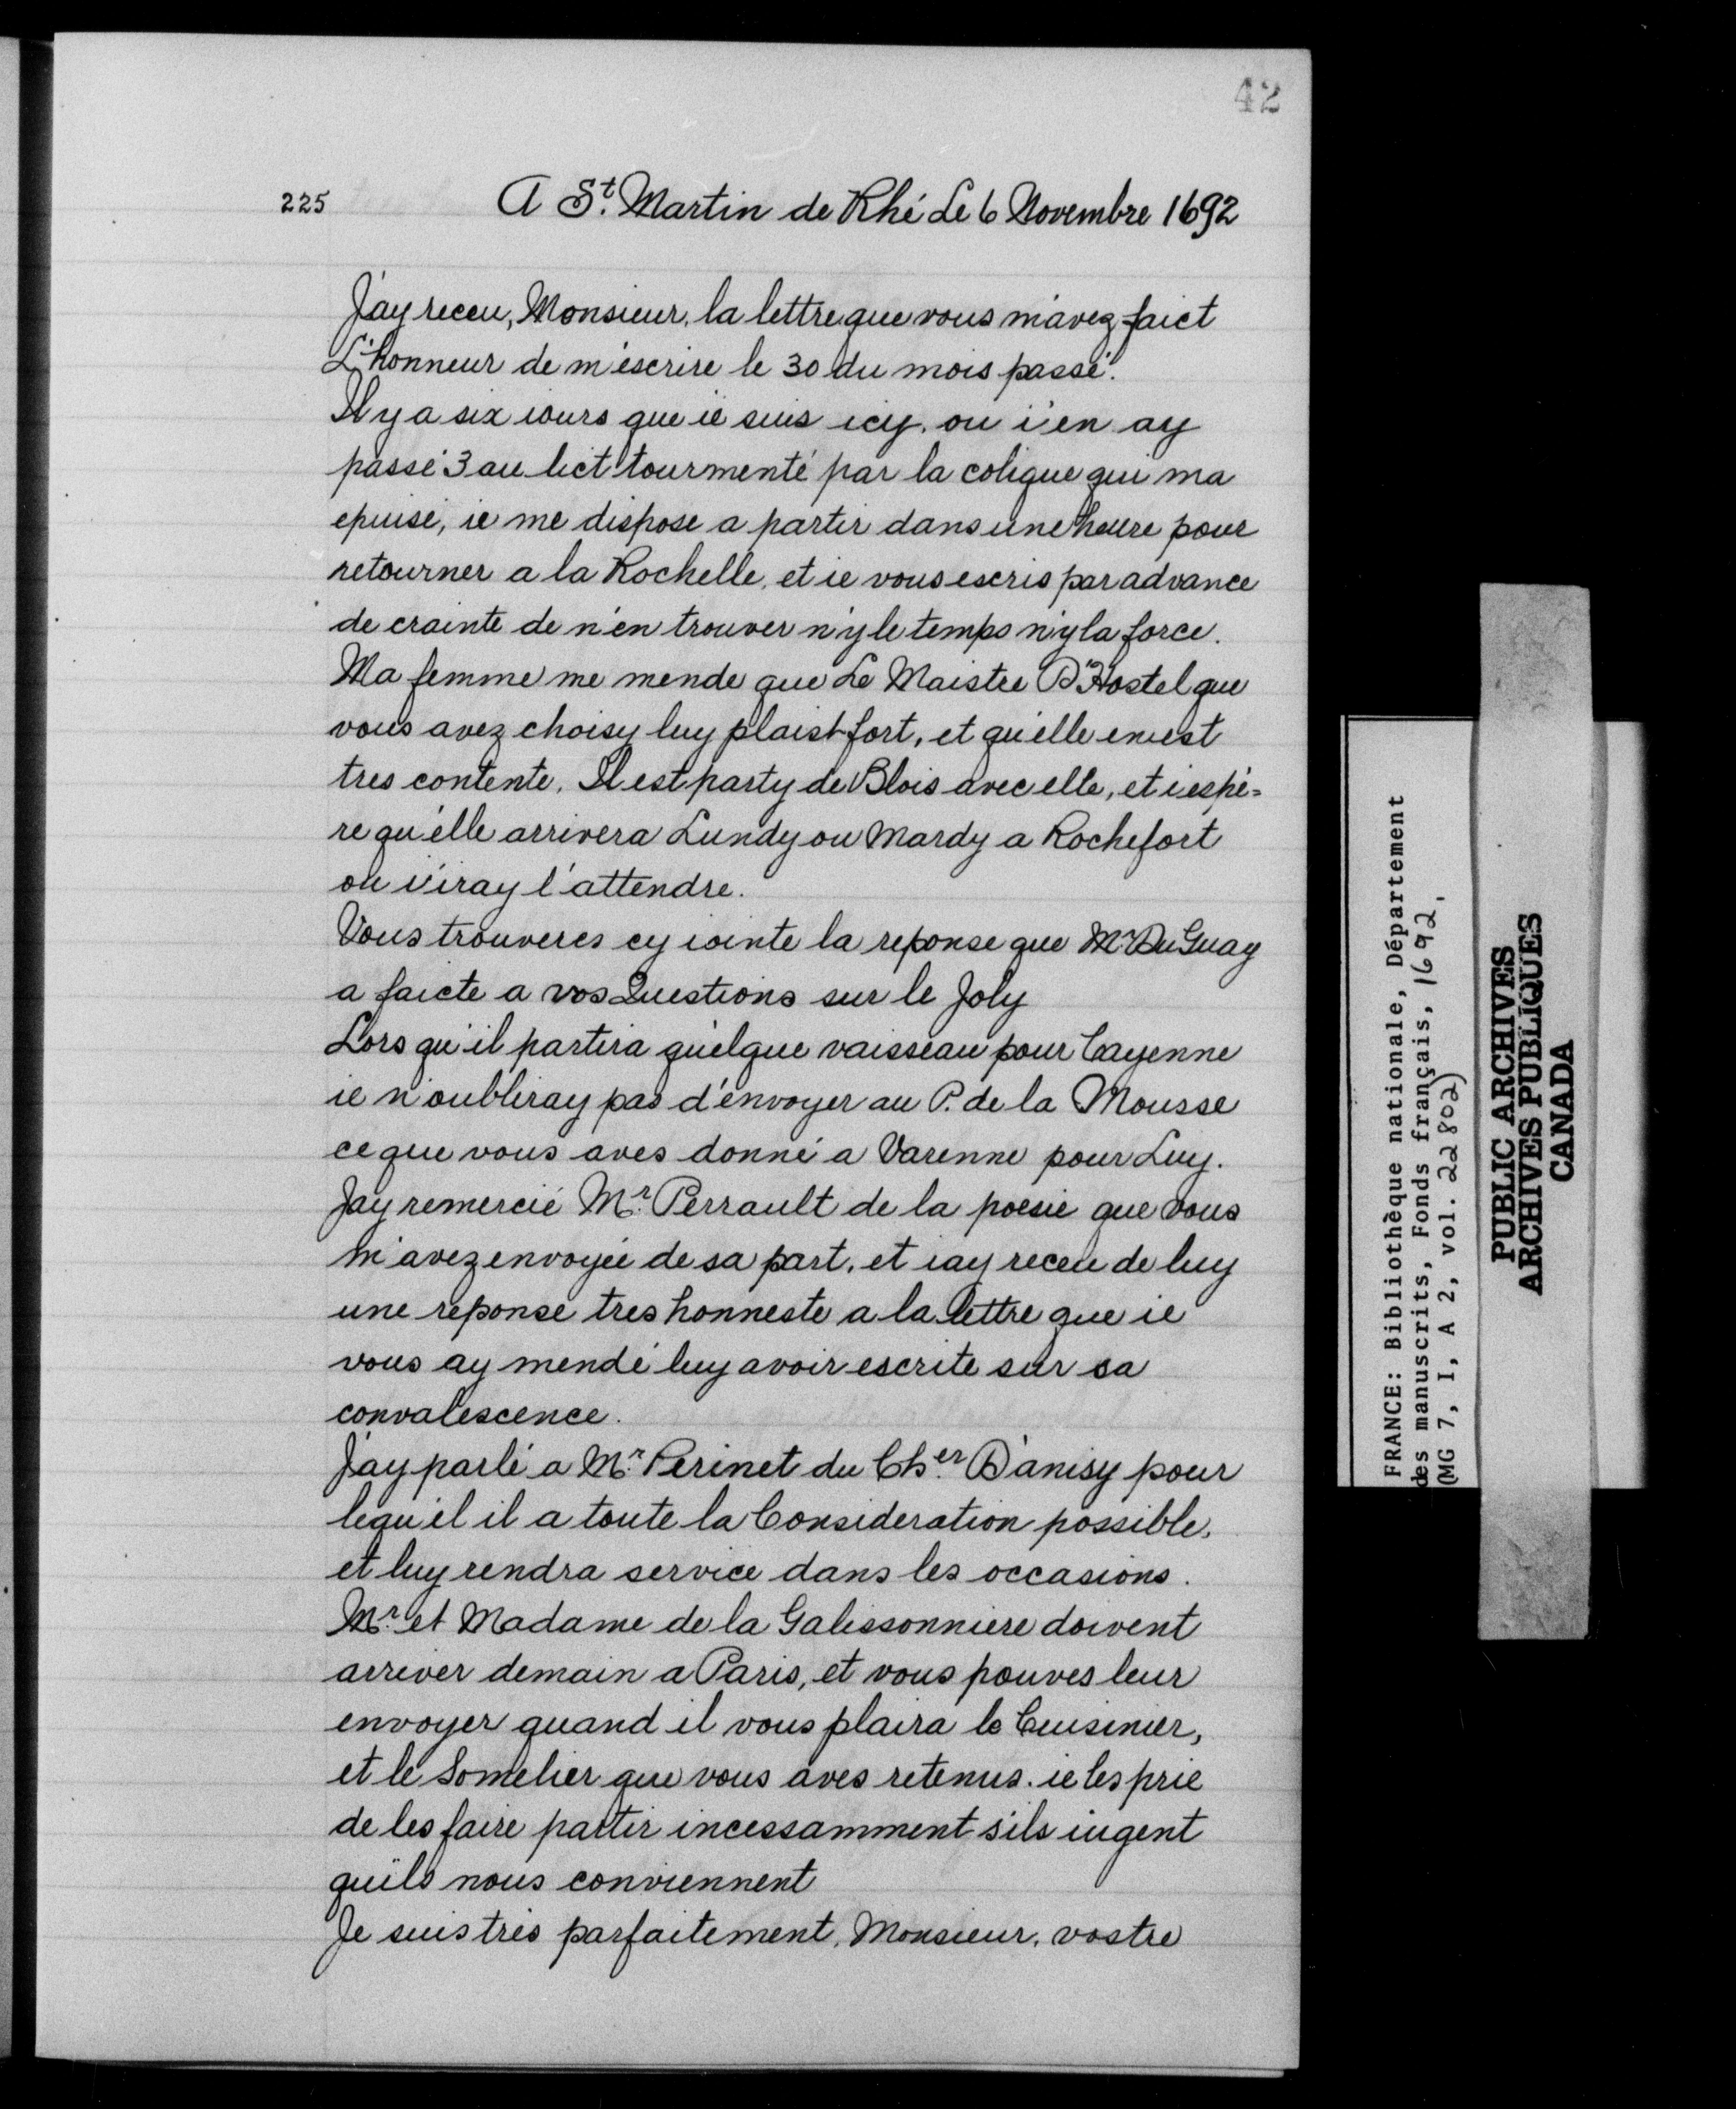 42
225 A St. Martin de Rhé Le 6 Novembre 1692
J'ay receu, Monsieur, la lettre que vous m'avez faict
L'honneur de m'escrire le 30 du mois passé.
Il y a six iours que ie suis icy, ou i'en ay
passé 3 au lict tourmenté par la colique qui ma
epuisé, ie me dispose a partir dans une heure pour
retourner a la Rochelle, et ie vous escris par advance
de crainte de n'en trouver n'y le temps n'y la force.
Ma femme me mende que Le Maistre D'Hostel que
vous avez choisy luy plaist fort, et qu'elle en est
tres contente. Il est party de Blois avec elle, et i'espé=
re qu'elle arrivera Lundy ou Mardy a Rochefort
ou i'iray l'attendre.
Vous trouveres cy iointe la reponse que Mr. Du Guay
a faicte a vos Questions sur le Joly
Lors qu'il partira quelque vaisseau pour Cayenne
ie n'oubliray pas d'envoyer au P. de la Mousse
ce que vous aves donné a Varenne pour Luy.
Jay remercié Mr. Perrault de la poesie que vous
m'avez envoyée de sa part, et iay receu de luy
une reponse tres honneste a la lettre que ie
vous ay mendé luy avoir escrite sur sa
convalescence.
J'ay parlé a Mr. Perinet du Cher. D'anisy pour
lequ'el il a toute la Consideration possible,
et luy rendra service dans les occasions.
Mr. et Madame de la Galissonniere doivent
arriver demain a Paris, et vous pouves leur
envoyer quand il vous plaira le Cuisinier,
et le Somelier que vous aves retenus. ie les prie
de les faire partir incessamment s'ils iugent
qu'ils nous conviennent
Je suis très parfaitement, Monsieur, vostre
FRANCE: Bibliothèque nationale, Département
des manuscrits, Fonds français, 1692,
(MG 7, I, A 2, vol. 22802)
PUBLIC ARCHIVES
ARCHIVES PUBLIQUES
CANADA